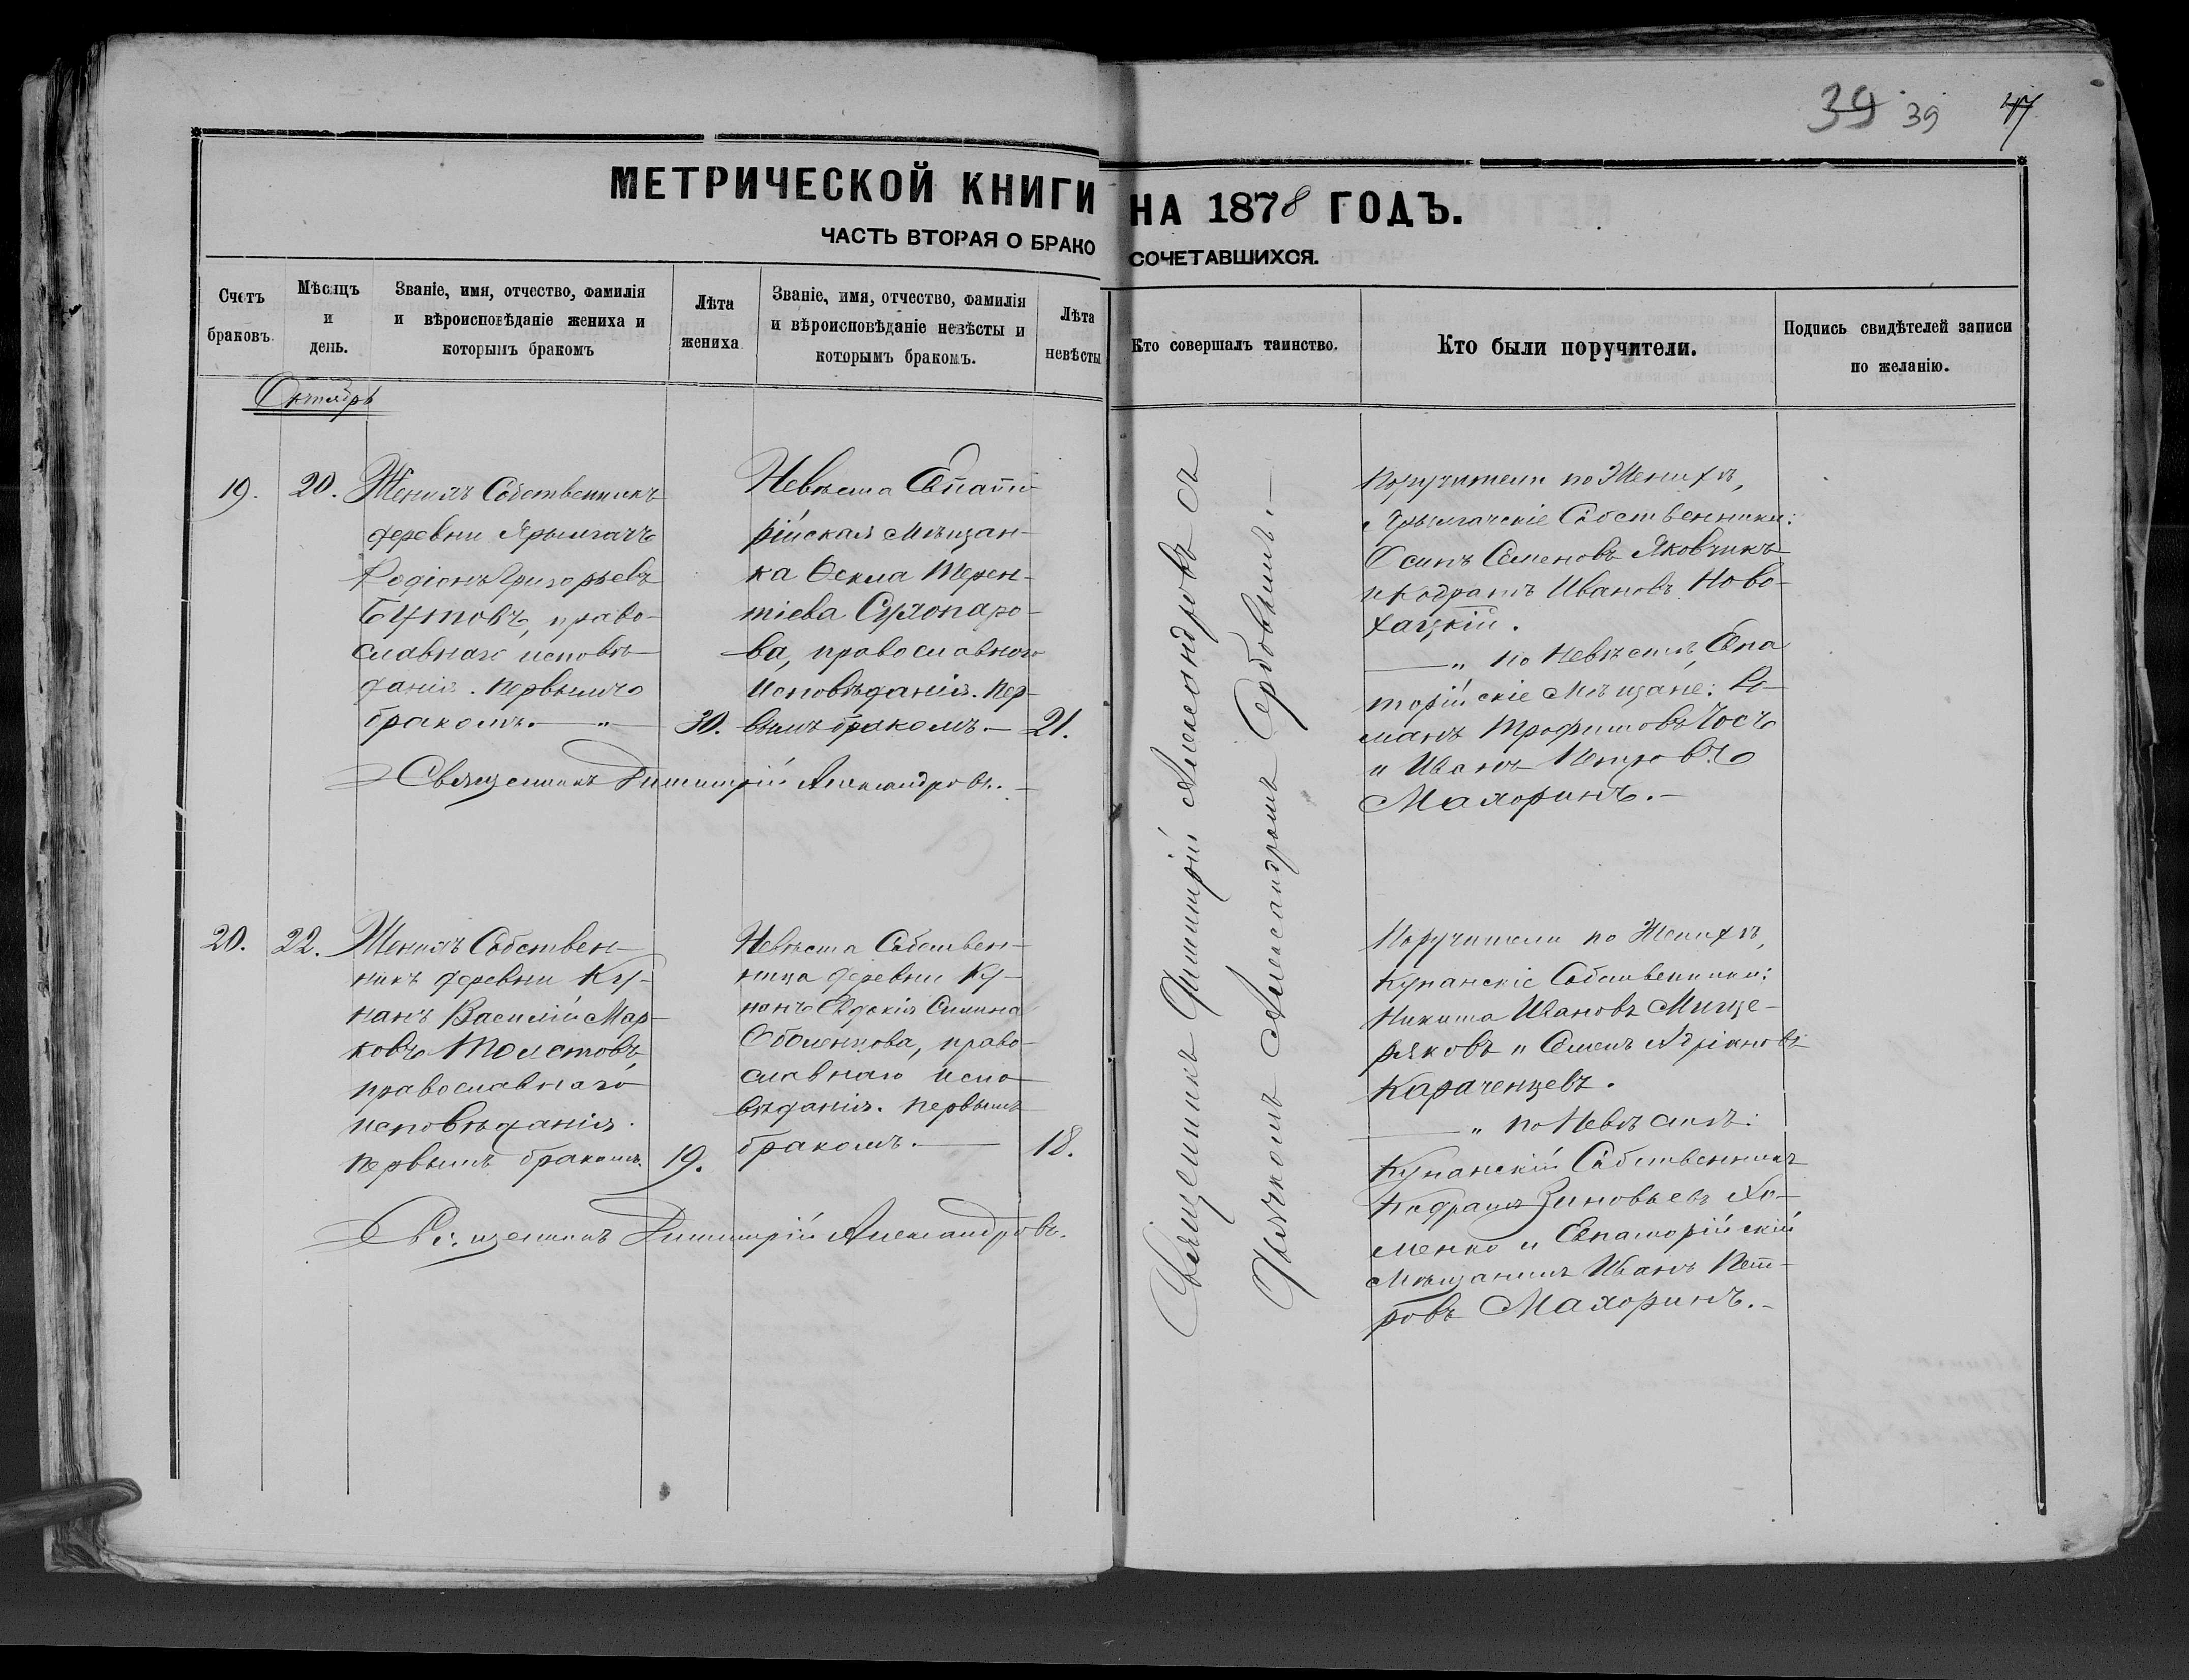 39 39 47
МЕТРИЧЕСКОЙ КНИГИ НА 1878 ГОДЪ.
ЧАСТЬ ВТОРАЯ О БРАКОСОЧЕТАВШИХСЯ.
Счетъ браковъ.
Мѣсяцъ и день.
Званіе, имя, отчество, фамилія и вѣроисповѣданіе жениха и которымъ бракомъ
Лѣта жениха
Званіе, имя, отчество, фамилія и вѣроисповѣданіе невѣсты и которымъ бракомъ.
Лѣта невѣсты
Кто совершалъ таинство.
Кто были поручители.
Подпись свидѣтелей записи по желанію.
Октябрь
19.
20.
Женихъ Собственникъ
деревни Ярылгачъ
Родіонъ Григорьевъ
Бутовъ, право-
славнаго исповѣ-
данія. Первымъ
бракомъ. — "
30.
Невѣста Евпато-
рійская Мѣщан-
ка Ѳекла Терен-
тіева Сухопаро-
ва, православнаго
Исповѣданія. Пер-
вымъ бракомъ. —
21.
Священникъ Димитрій Александровъ. —
Священникъ Димитрій Александровъ съ
Дьячкомъ Александромъ Сербовымъ. —
Поручители по Женихѣ,
Ярылгачскіе Собственники:
Осипъ Семеновъ Яковчикъ
и Кодратъ Ивановъ Ново-
хацкій.
— " по Невѣстѣ, Евпа
торійскіе Мѣщане: Ро-
манъ Трофимовъ Чосъ
и Иванъ Петровъ
Махоринъ. —
20.
22.
Женихъ Собствен-
никъ деревни Ку-
нанъ Василій Мар-
ковъ Толстовъ,
православнаго
исповѣданія.
Первымъ бракомъ.
19.
Невѣста Собствен-
ница деревни Ку-
нанъ Евдокія Силина
Оболенцова, право-
славнаго испо-
вѣданія. Первымъ
бракомъ. —
18.
Священникъ Димитрій Александровъ.
Поручители по Женихѣ,
Кунанскіе Собственники:
Никита Ивановъ Мище-
ряковъ и Семенъ Адріановъ
Караченцевъ.
— " по Невѣстѣ:
Кунанскій Собственникъ
Кодратъ Зиновьевъ Хо-
менко и Евпаторійскій
Мѣщанинъ Иванъ Пет-
ровъ Махоринъ. —